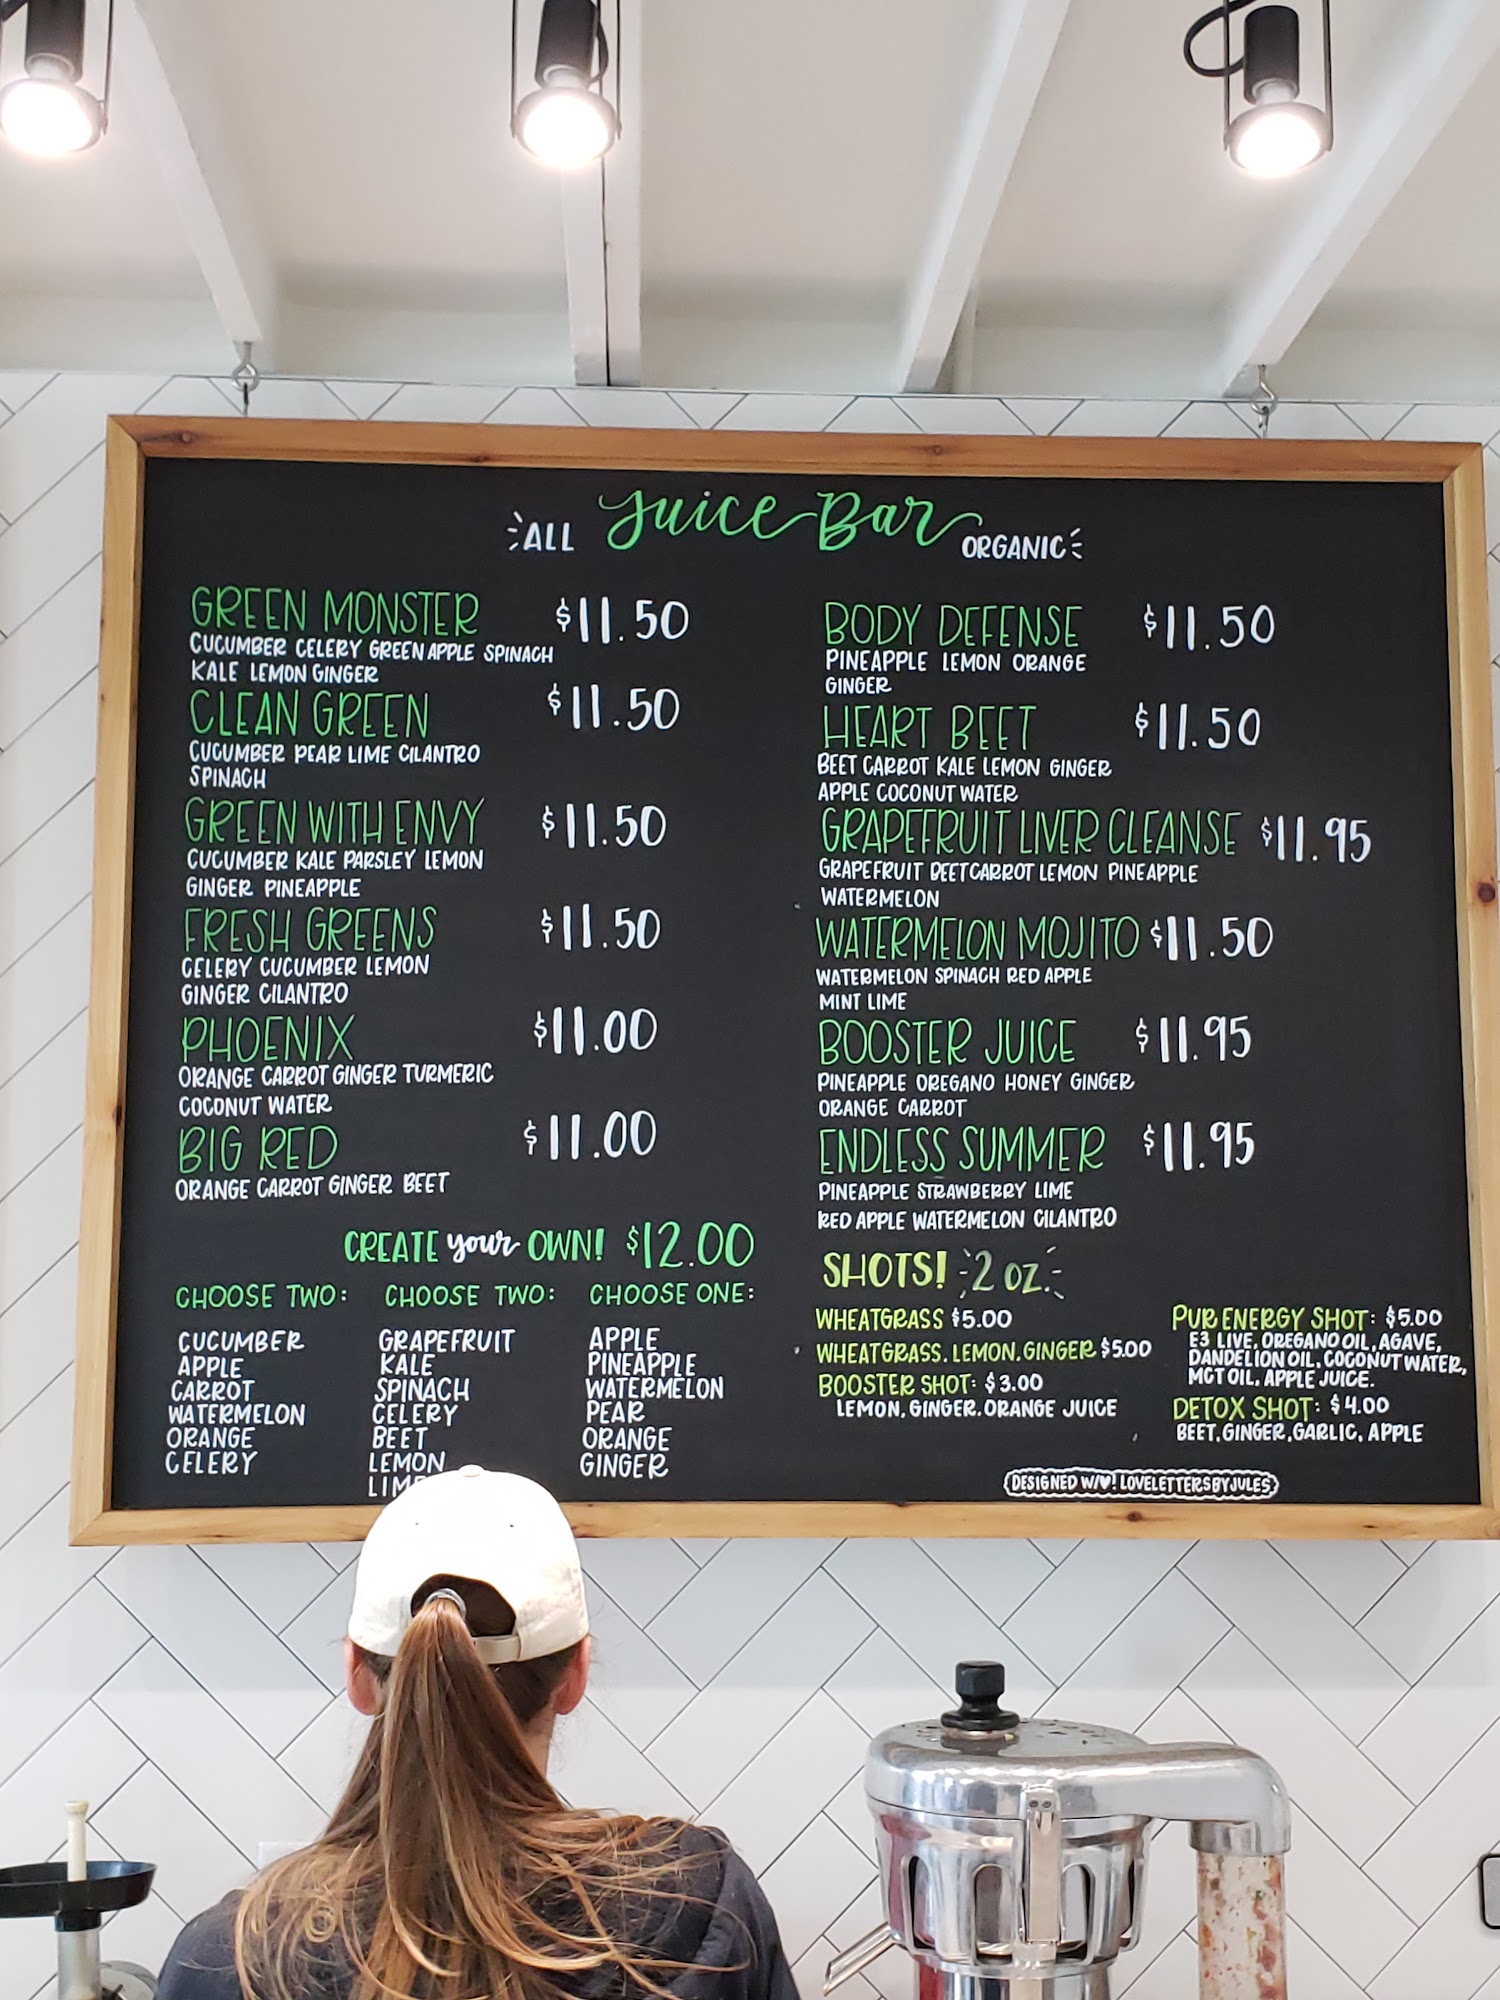 Juice Bar
ALL ORGANIC
GREEN MONSTER $11.50
CUCUMBER CELERY GREEN APPLE SPINACH
KALE LEMON GINGER
CLEAN GREEN $11.50
CUCUMBER PEAR LIME CILANTRO
SPINACH
GREEN WITH ENVY $11.50
CUCUMBER KALE PARSLEY LEMON
GINGER PINEAPPLE
FRESH GREENS $11.50
CELERY CUCUMBER LEMON
GINGER CILANTRO
PHOENIX $11.00
ORANGE CARROT GINGER TURMERIC
COCONUT WATER
BIG RED $11.00
ORANGE CARROT GINGER BEET
CREATE your OWN! $12.00
CHOOSE TWO:
CUCUMBER
APPLE
CARROT
WATERMELON
ORANGE
CELERY
CHOOSE TWO:
GRAPEFRUIT
KALE
SPINACH
CELERY
BEET
LEMON
LIME
CHOOSE ONE:
APPLE
PINEAPPLE
WATERMELON
PEAR
ORANGE
GINGER
BODY DEFENSE $11.50
PINEAPPLE LEMON ORANGE
GINGER
HEART BEET $11.50
BEET CARROT KALE LEMON GINGER
APPLE COCONUT WATER
GRAPEFRUIT LIVER CLEANSE $11.95
GRAPEFRUIT BEET CARROT LEMON PINEAPPLE
WATERMELON
WATERMELON MOJITO $11.50
WATERMELON SPINACH RED APPLE
MINT LIME
BOOSTER JUICE $11.95
PINEAPPLE OREGANO HONEY GINGER
ORANGE CARROT
ENDLESS SUMMER $11.95
PINEAPPLE STRAWBERRY LIME
RED APPLE WATERMELON CILANTRO
SHOTS! 2 OZ.
WHEATGRASS $5.00
WHEATGRASS. LEMON. GINGER $5.00
BOOSTER SHOT: $3.00
LEMON, GINGER. ORANGE JUICE
PUR ENERGY SHOT: $5.00
E3 LIVE, OREGANO OIL, AGAVE,
DANDELION OIL, COCONUT WATER,
MCT OIL, APPLE JUICE.
DETOX SHOT: $4.00
BEET, GINGER, GARLIC, APPLE
DESIGNED W/♥! LOVELETTERSBYJULES